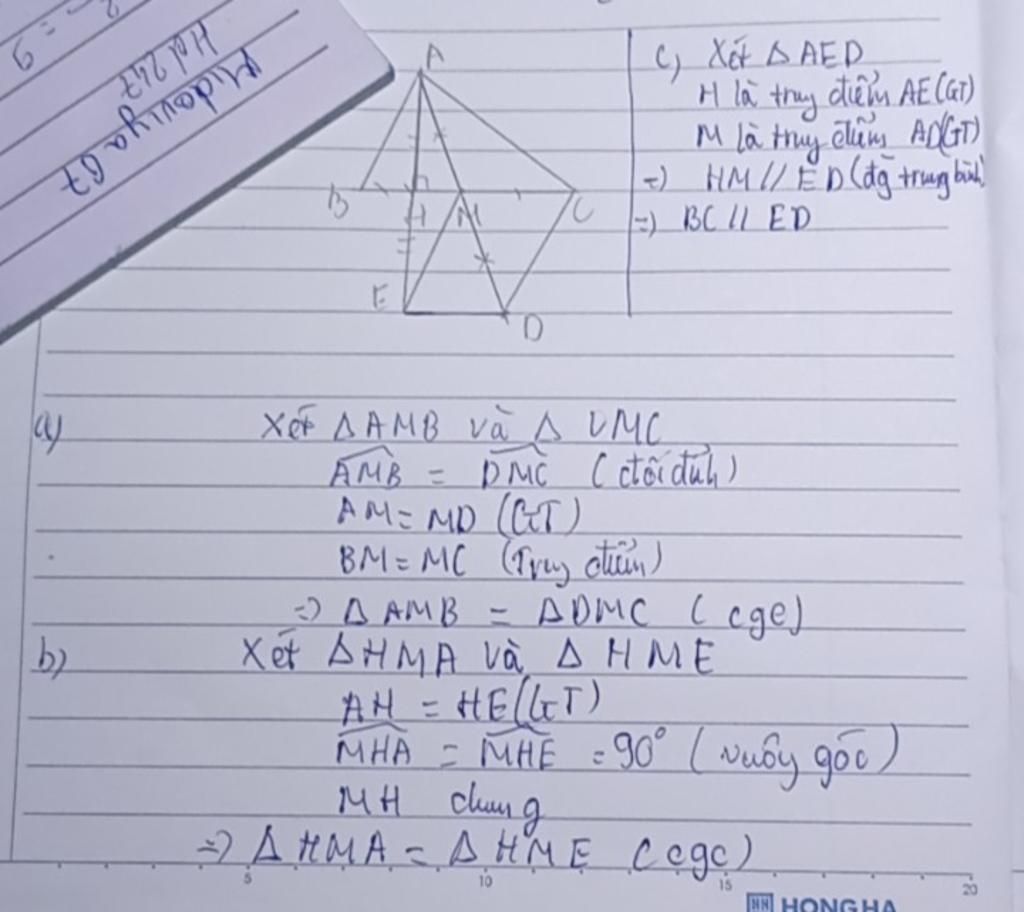 = 9
Midoriya 67
Hol 247
A
B
H
M
C
E
D
c) Xét Δ AED
H là trung điểm AE (GT)
M là trung điểm AD (GT)
=) HM // ED (đg trung bình)
=) BC // ED
a) Xét Δ AMB và Δ DMC
AMB = DMC (đối đỉnh)
AM = MD (GT)
BM = MC (Trung điểm)
=) Δ AMB = Δ DMC (cgc)
b) Xét Δ HMA và Δ HME
AH = HE (GT)
MHA = MHE = 90° (vuông góc)
MH chung
=) Δ HMA = Δ HME (cgc)
5 10 15 20
HH HONG HA